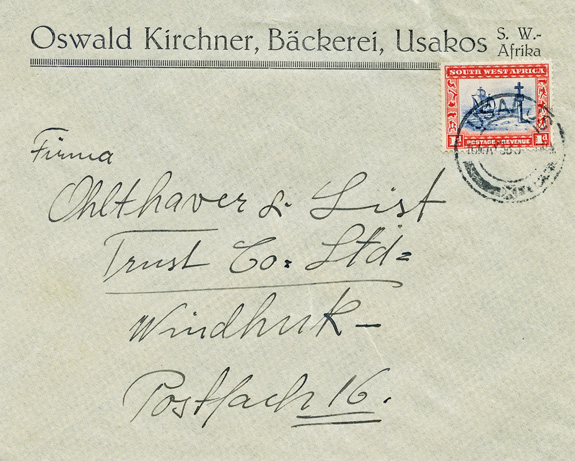 Oswald Kirchner, Bäckerei, Usakos S. W.-
Afrika
SOUTH WEST AFRICA
POSTAGE REVENUE
1d
Firma
Ohlthaver & List
Trust Co: Ltd=
Windhuk-
Postfach 16.